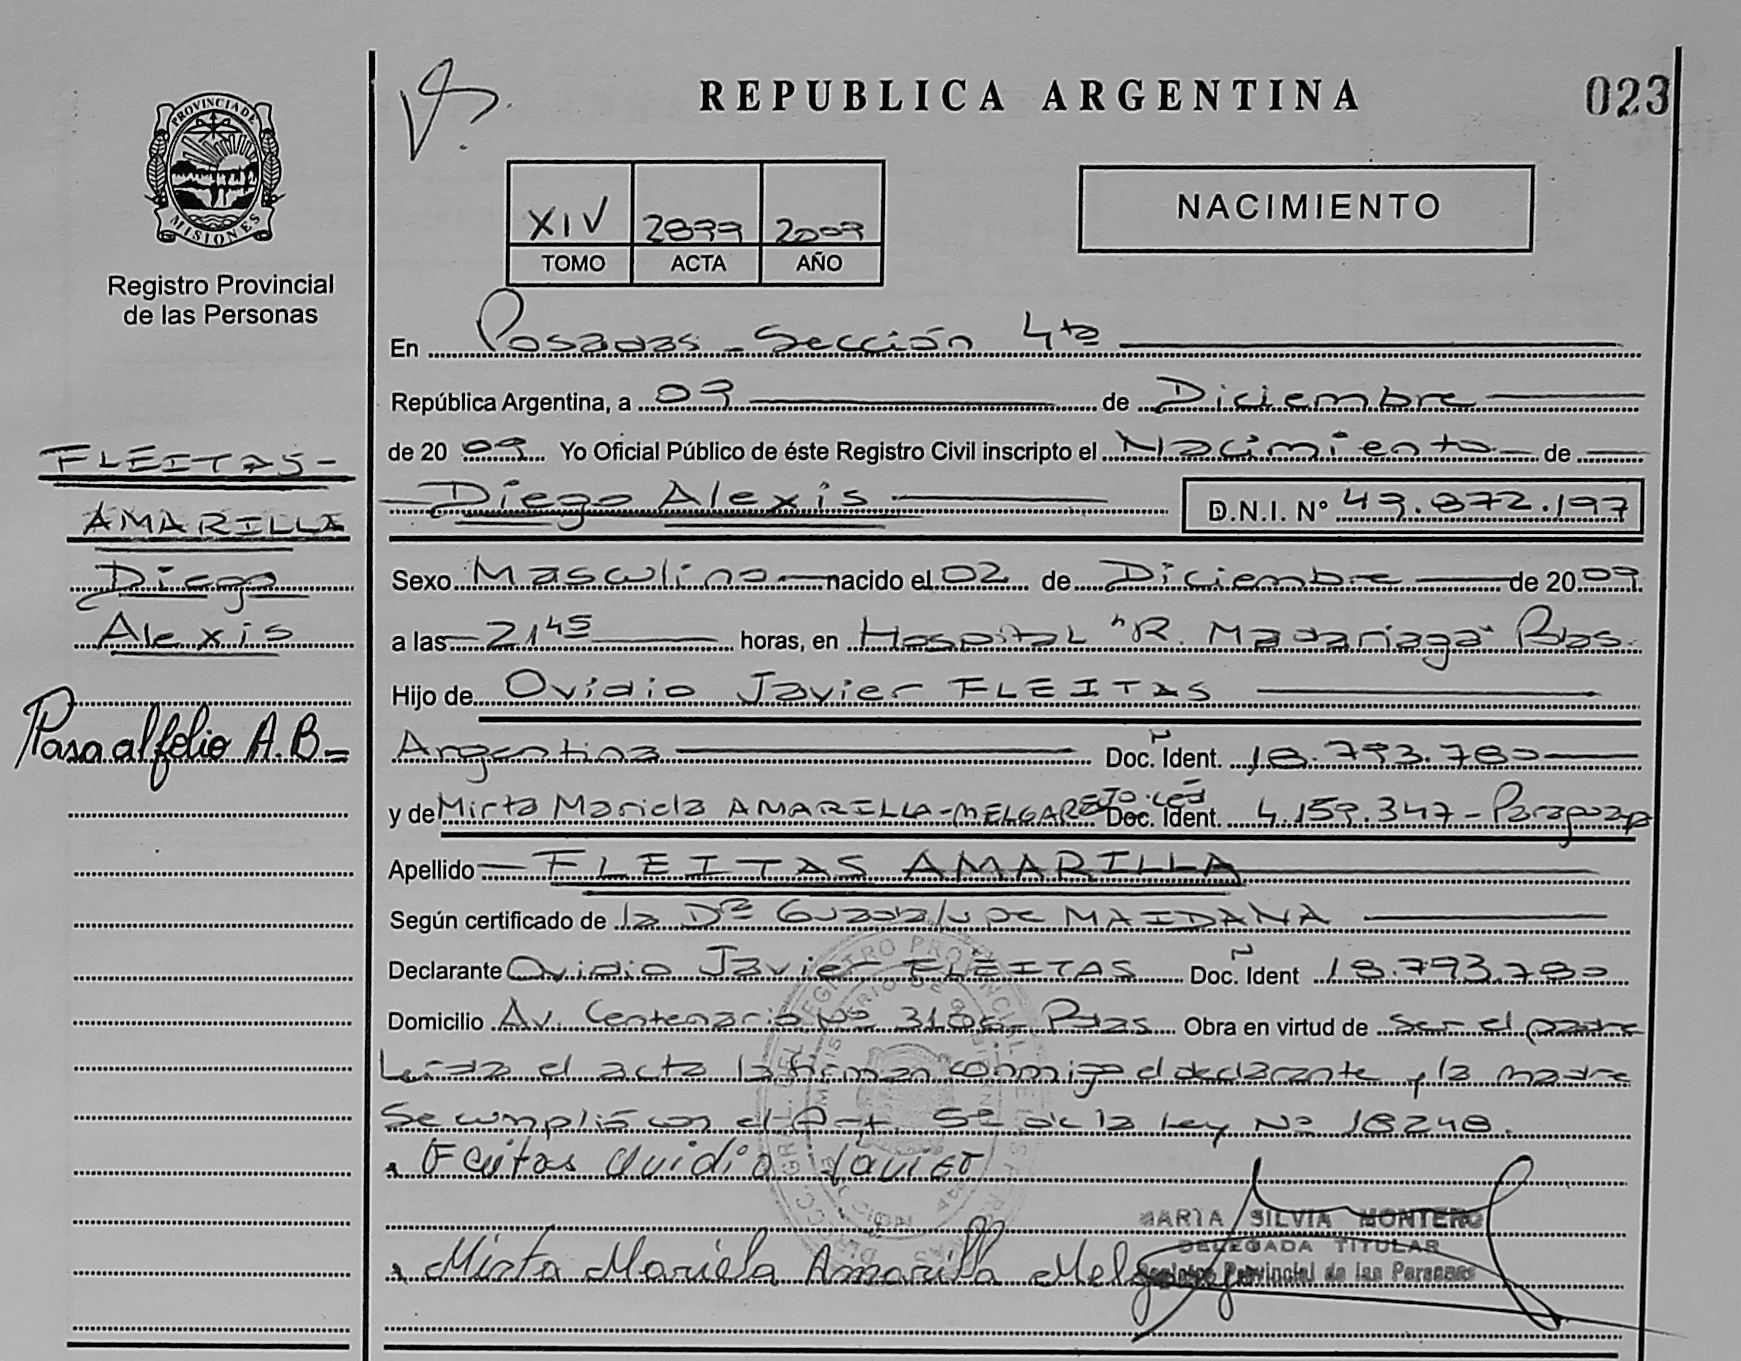 REPUBLICA ARGENTINA
023
PROVINCIA DE
MISIONES
Registro Provincial
de las Personas
XIV 2899 2009
TOMO ACTA AÑO
NACIMIENTO
En Posadas - Sección 4ta
República Argentina, a 09 de Diciembre
de 2009 Yo Oficial Público de éste Registro Civil inscripto el Nacimiento de
Diego Alexis D.N.I. N° 49.872.197
Sexo Masculino nacido el 02 de Diciembre de 2009
a las 21 45 horas, en Hospital "R. Madariaga" Pdas.
Hijo de Ovidio Javier FLEITAS
Argentina Doc. Ident. 18.793.780
y de Mirta Mariela AMARILLA-MELGAREJO Céd Doc. Ident. 4.159.347 - Paraguaya
Apellido FLEITAS AMARILLA
Según certificado de la Dra Guadalupe MAIDANA
Declarante Ovidio Javier FLEITAS Doc. Ident 18.793.780
Domicilio Av. Centenario Nº 3106 - Pdas Obra en virtud de ser el padre
Leída el acta la firman conmigo el declarante y la madre
Se cumplió con el Art. 5º de la Ley Nº 18248.
Fleitas Ovidio Javier
MARIA SILVIA MONTERO
DELEGADA TITULAR
Registro Provincial de las Personas
Mirta Mariela Amarilla
FLEITAS-
AMARILLA
Diego
Alexis
Pasa al folio A.B=